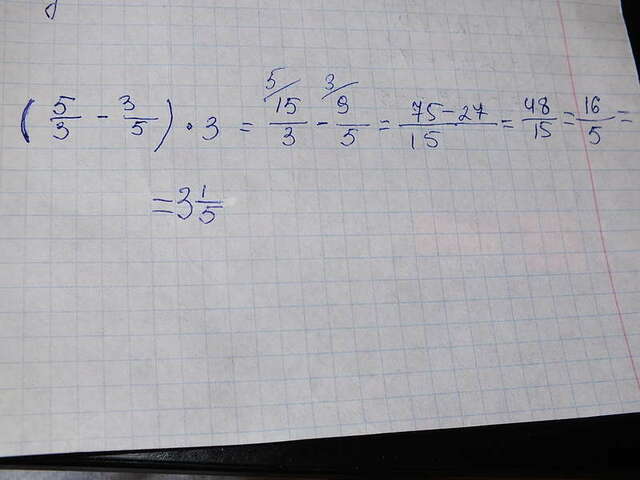 (5/3 - 3/5) · 3 = 5/ 15/3 - 3/ 9/5 = 75-27/15 = 48/15 = 16/5 =
= 3 1/5